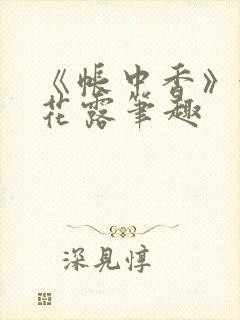 《帐中香》
花露笔趣
深见惇